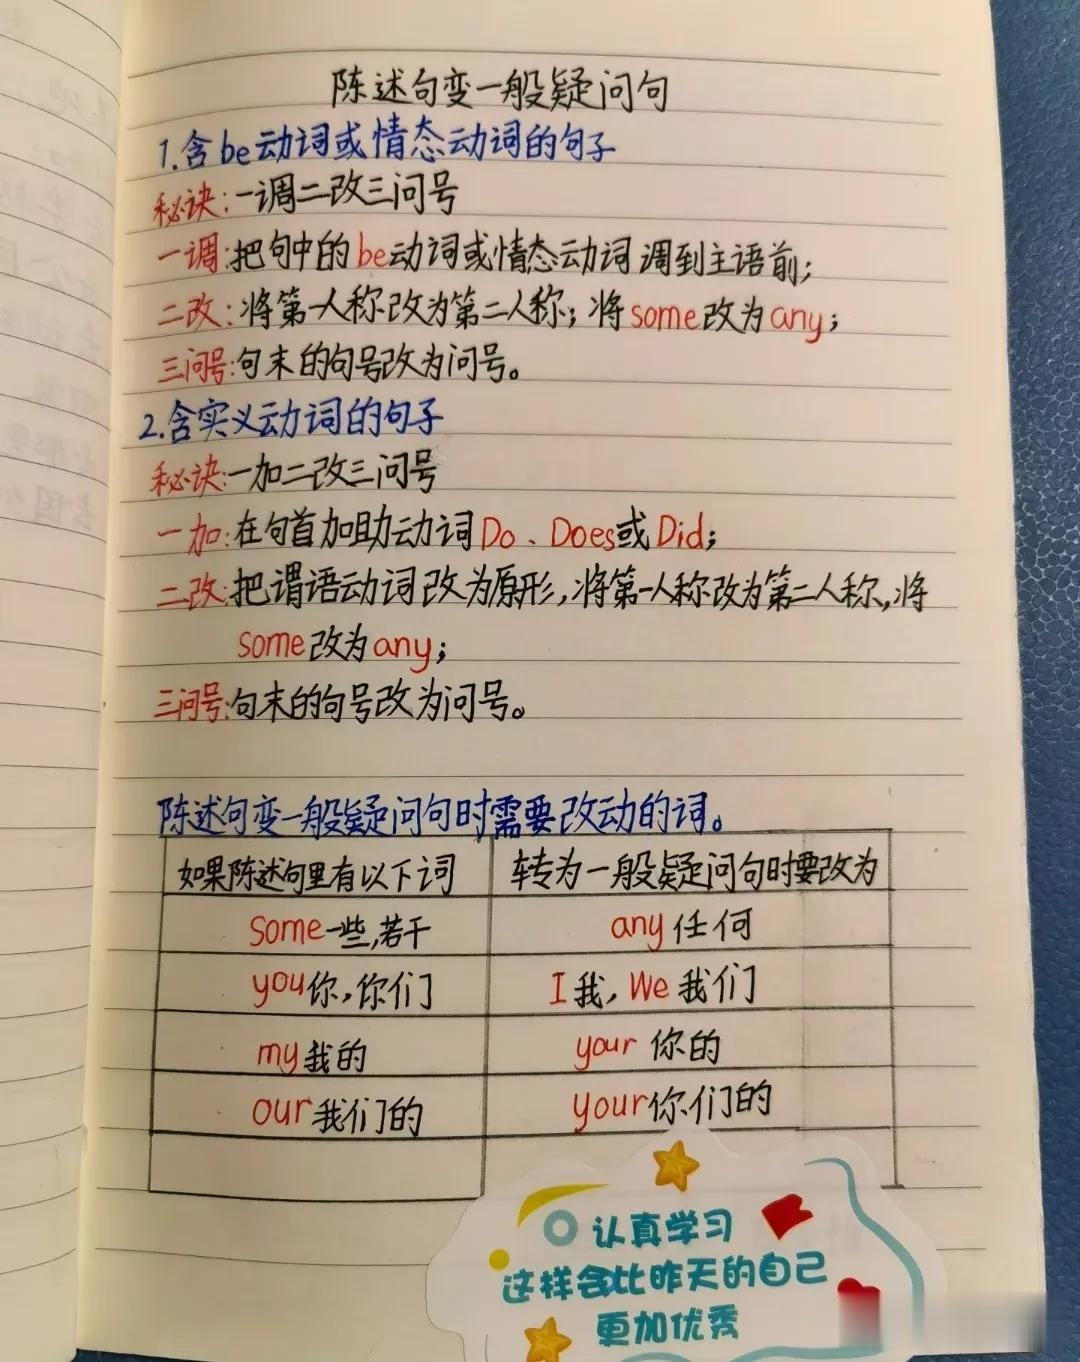 陈述句变一般疑问句
1.含be动词或情态动词的句子
秘诀:一调二改三问号
一调:把句中的be动词或情态动词调到主语前;
二改:将第一人称改为第二人称;将some改为any;
三问号:句末的句号改为问号。
2.含实义动词的句子
秘诀:一加二改三问号
一加:在句首加助动词Do、Does或Did;
二改:把谓语动词改为原形,将第一人称改为第二人称,将
some改为any;
三问号:句末的句号改为问号。
陈述句变一般疑问句时需要改动的词。
如果陈述句里有以下词 转为一般疑问句时要改为
some一些,若干 any任何
you你,你们 I我,We我们
my我的 your你的
our我们的 your你们的
认真学习
这样会比昨天的自己
更加优秀